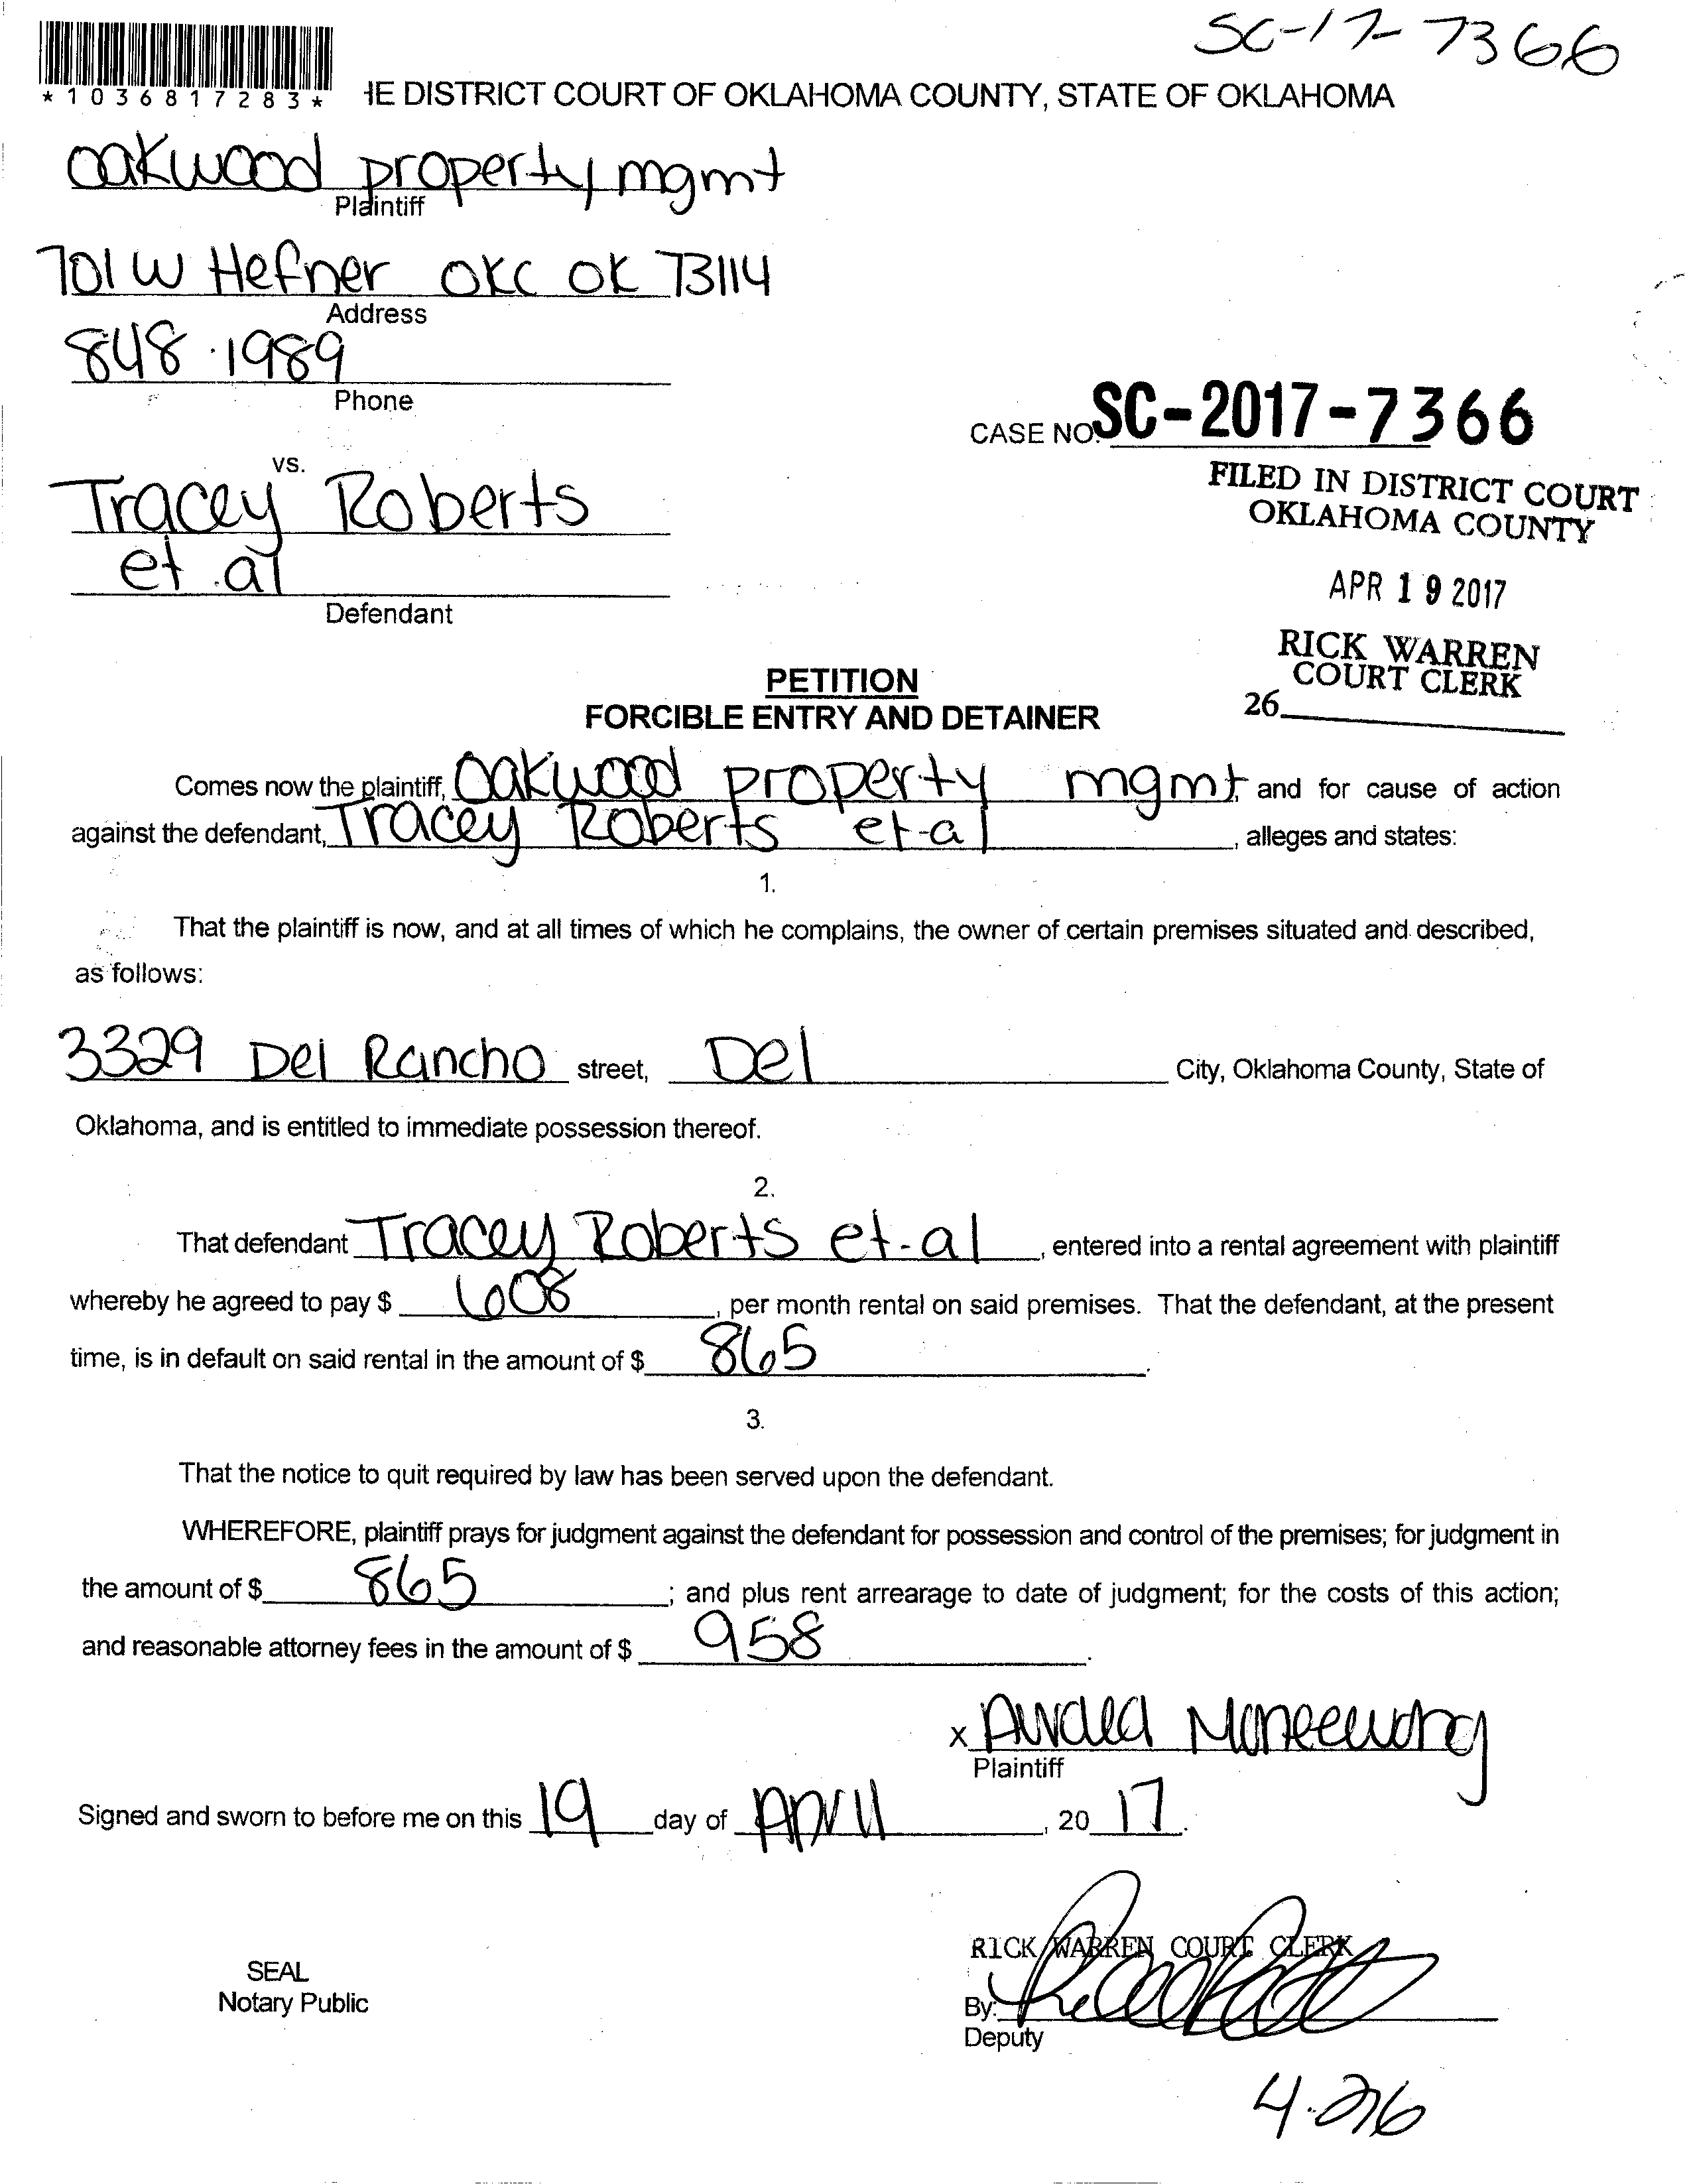 SC-17-7366
*1036817283*
HE DISTRICT COURT OF OKLAHOMA COUNTY, STATE OF OKLAHOMA
Oakwood property mgmt
Plaintiff
701 W Hefner OKC OK 73114
Address
848.1989
Phone
CASE NO. SC-2017-7366
vs.
Tracey Roberts
et al
Defendant
FILED IN DISTRICT COURT
OKLAHOMA COUNTY
APR 19 2017
RICK WARREN
COURT CLERK
26
PETITION
FORCIBLE ENTRY AND DETAINER
Comes now the plaintiff, Oakwood property mgmt, and for cause of action
against the defendant, Tracey Roberts et-al, alleges and states:
1.
That the plaintiff is now, and at all times of which he complains, the owner of certain premises situated and described,
as follows:
3329 Del Rancho street, Del City, Oklahoma County, State of
Oklahoma, and is entitled to immediate possession thereof.
2.
That defendant Tracey Roberts et-al, entered into a rental agreement with plaintiff
whereby he agreed to pay $ 608, per month rental on said premises. That the defendant, at the present
time, is in default on said rental in the amount of $ 865.
3.
That the notice to quit required by law has been served upon the defendant.
WHEREFORE, plaintiff prays for judgment against the defendant for possession and control of the premises; for judgment in
the amount of $ 865; and plus rent arrearage to date of judgment; for the costs of this action;
and reasonable attorney fees in the amount of $ 958.
x
Plaintiff
Signed and sworn to before me on this 19 day of April, 20 17.
SEAL
Notary Public
RICK WARREN COURT CLERK
By:
Deputy
4-26